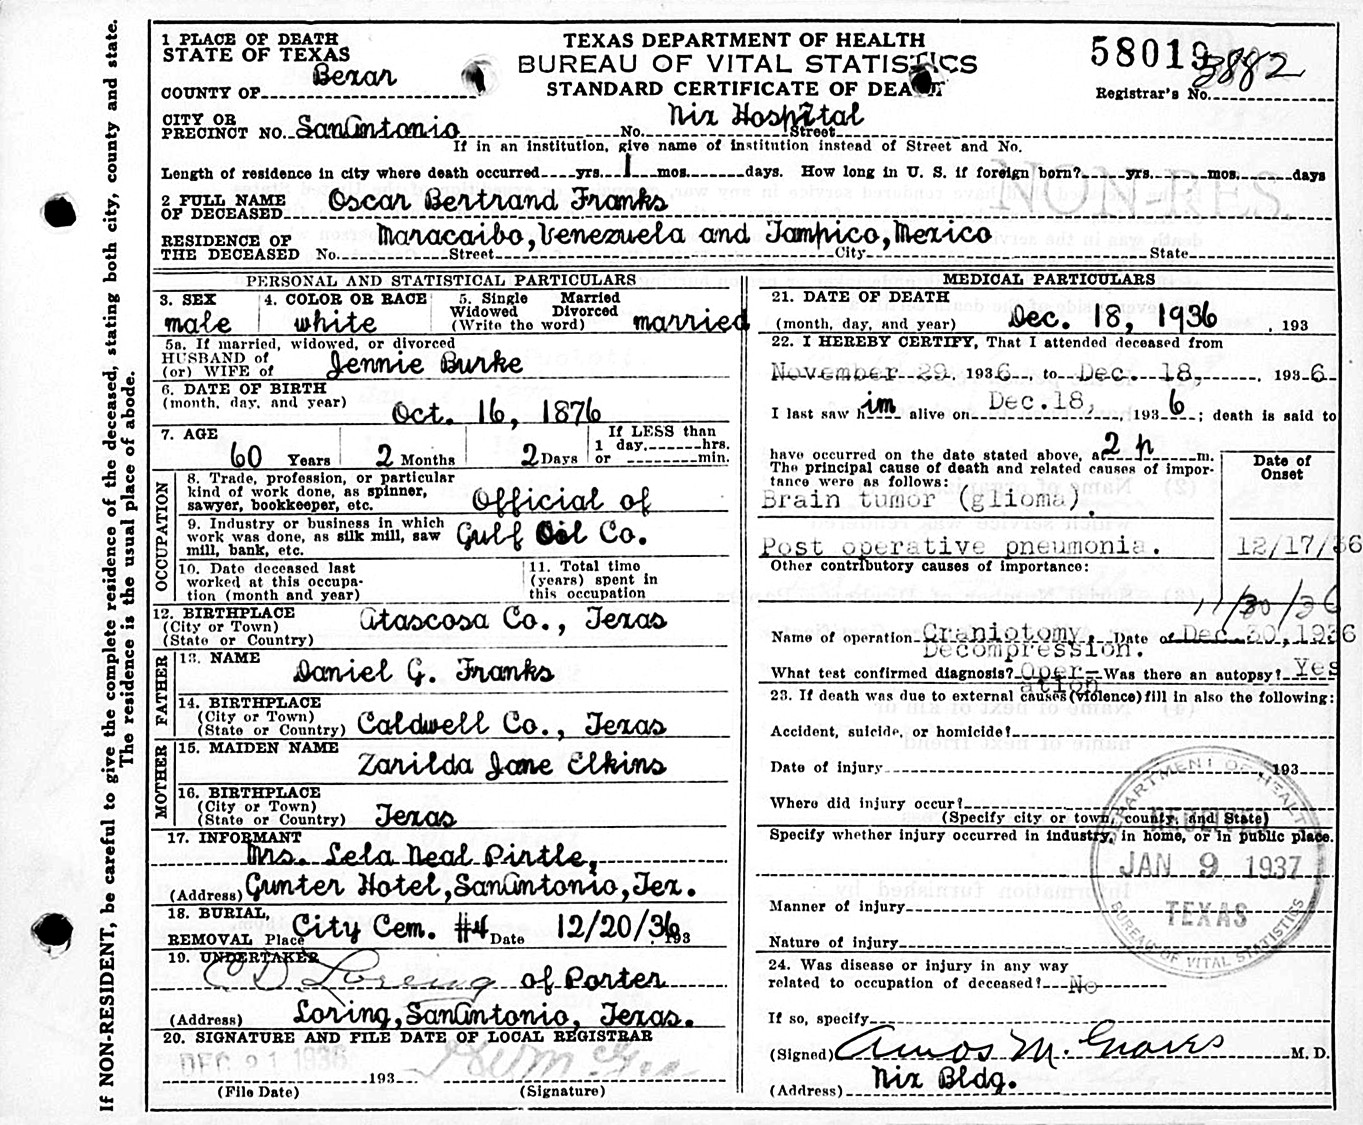 1 PLACE OF DEATH
STATE OF TEXAS
COUNTY OF Bexar
TEXAS DEPARTMENT OF HEALTH
BUREAU OF VITAL STATISTICS
STANDARD CERTIFICATE OF DEATH
58019
3882
Registrar's No.
CITY OR
PRECINCT NO. San Antonio No. Nix Hospital Street
If in an institution, give name of institution instead of Street and No.
Length of residence in city where death occurred yrs. 1 mos. days. How long in U. S. if foreign born? yrs. mos. days
2 FULL NAME
OF DECEASED Oscar Bertrand Franks
RESIDENCE OF Maracaibo, Venezuela and Tampico, Mexico
THE DECEASED No. Street City State
PERSONAL AND STATISTICAL PARTICULARS
3. SEX 4. COLOR OR RACE 5. Single Married
Widowed Divorced
(Write the word)
male white married
5a. If married, widowed, or divorced
HUSBAND of
(or) WIFE of Jennie Burke
6. DATE OF BIRTH
(month, day, and year) Oct. 16, 1876
7. AGE If LESS than
1 day, hrs.
or min.
60 Years 2 Months 2 Days
OCCUPATION
8. Trade, profession, or particular
kind of work done, as spinner,
sawyer, bookkeeper, etc. Official of
9. Industry or business in which
work was done, as silk mill, saw
mill, bank, etc. Gulf Oil Co.
10. Date deceased last
worked at this occupa-
tion (month and year)
11. Total time
(years) spent in
this occupation
12. BIRTHPLACE
(City or Town)
(State or Country) Atascosa Co., Texas
FATHER
13. NAME Daniel G. Franks
14. BIRTHPLACE
(City or Town)
(State or Country) Caldwell Co., Texas
MOTHER
15. MAIDEN NAME
Zarilda Jane Elkins
16. BIRTHPLACE
(City or Town)
(State or Country) Texas
17. INFORMANT
Mrs. Lela Neal Pirtle,
(Address) Gunter Hotel, San Antonio, Tex.
18. BURIAL,
REMOVAL Place City Cem. #4 Date 12/20/36 193
19. UNDERTAKER
C D Loring of Porter
(Address) Loring, San Antonio, Texas.
20. SIGNATURE AND FILE DATE OF LOCAL REGISTRAR
DEC 21 1936
193
(File Date) (Signature)
MEDICAL PARTICULARS
21. DATE OF DEATH
(month, day, and year) Dec. 18, 1936, 193
22. I HEREBY CERTIFY, That I attended deceased from
November 29, 1936, to Dec. 18, 1936
I last saw him alive on Dec. 18, 1936; death is said to
have occurred on the date stated above, at 2 p m.
The principal cause of death and related causes of impor-
tance were as follows:
Date of
Onset
Brain tumor (glioma).
Post operative pneumonia. 12/17/36
Other contributory causes of importance:
11/30/36
Name of operation Craniotomy, Date of Dec. 30, 1936
Decompression.
What test confirmed diagnosis? Oper- Was there an autopsy? Yes
ation
23. If death was due to external causes (violence) fill in also the following:
Accident, suicide, or homicide?
Date of injury , 193
Where did injury occur?
(Specify city or town, county, and State)
Specify whether injury occurred in industry, in home, or in public place.
Manner of injury
Nature of injury
DEPARTMENT OF HEALTH
RECEIVED
JAN 9 1937
TEXAS
BUREAU OF VITAL STATISTICS
24. Was disease or injury in any way
related to occupation of deceased? No
If so, specify
(Signed) Amos M. Graves M. D.
(Address) Nix Bldg.
If NON-RESIDENT, be careful to give the complete residence of the deceased, stating both city, county and state.
The residence is the usual place of abode.